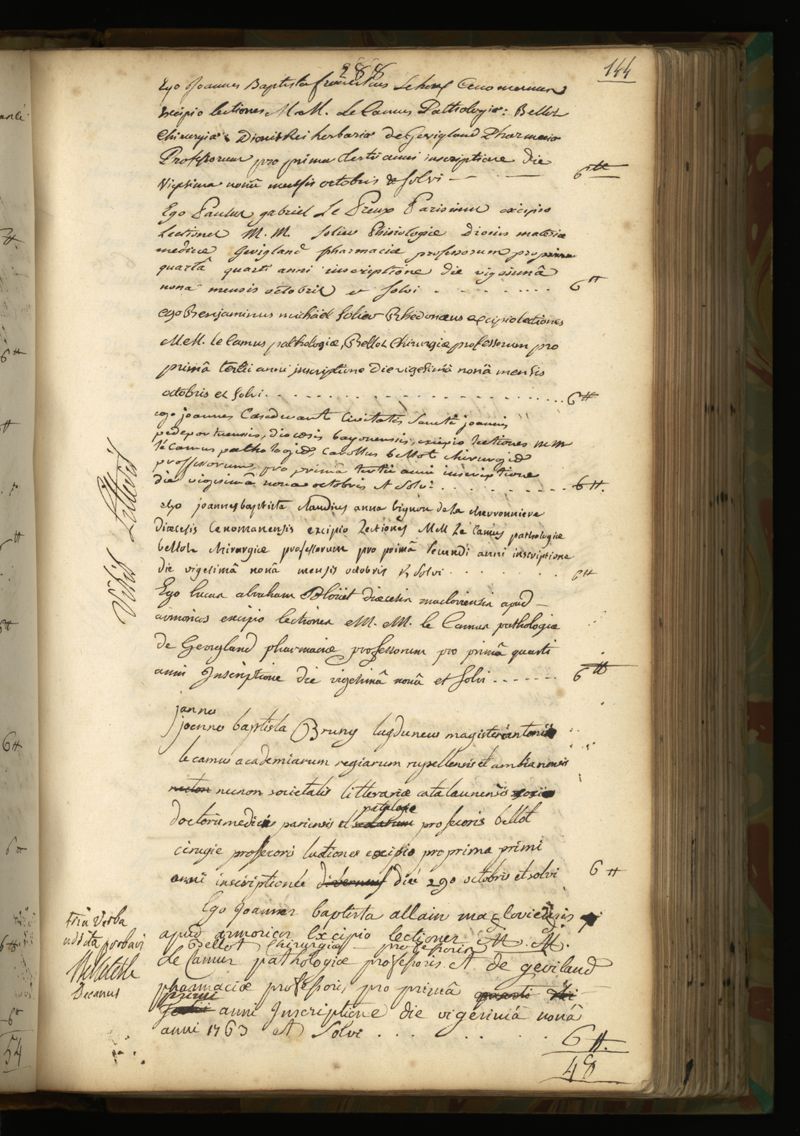 288
144
Ego Joannes Baptista franciscus Cenomanus
excipio lectiones M.M. Le Camus Pathologiæ: Bellot
Chirurgiæ, Dionis Rei herbariæ De Gevigland Pharmaciæ
Professorum pro prima tertii anni inscriptione die
Vigesima nonâ mensis octobris & Solvi — 6 tt
Ego Paulus gabriel Le Preux Parisinus excipio
Lectiones M. M. Solier Phisiologiæ Dionis materiæ
medicæ Gevigland pharmaciæ professorum pro prima
quartâ quarti anni inscriptione die vigesimâ
nonâ mensis octobris et Solvi . . . . . . . . 6 tt
ego Benjaminus michael Solier Rhedonæus excipio lectiones
M.M. le Camus pathologiæ, Bellot Chirurgiæ professorum pro
primâ tertii anni inscriptione die vigesimâ nonâ mensis
octobris et Solvi . . . . . . . . . . . . . 6 tt
ego joannes Casadevant Civitatis Sancti joannis
pedeportuensis, diocesis bayonensis, excipio lectiones m m
le Camus pathologiæ Carolus bellot chirurgiæ
professorum, pro primâ tertii anni inscriptione
die vigesimâ nona octobris et Solvi . . . . . . 6 tt.
ego joannes baptista claudius anna vignon de la chevronniere
diœcesis Cenomanensis excipio lectiones M.M Le Camus pathologiæ
bellot chirurgiæ professorum pro primâ secundi anni inscriptione
die vigesimâ nonâ mensis octobris & Solvi . . . . . 6 tt
Ego lucas abraham Bloüet diœcesis macloviensis apud
armoricos excipio lectiones M. M. le Camus pathologiæ
de Gevigland pharmaciæ professorum pro primâ quarti
anni Inscriptione die vigesimâ nonâ et Solvi . . . . . . 6 tt
joannes
joannes baptista Bruny lugduneus magistri antonii
le camus academiarum regiarum rupellensis et ambianensis
necnon societatis litterariæ catalaunensis
doctoris medici parisiensis et patologie professoris bellot
cirugie professoris lectiones excipio pro prima primi
anni inscriptione die 29o octobris et solvi 6 tt
Ego Joannes baptista allain macloviensis
apud armoricos Excipio lectiones M. M.
Bellot Chirurgiæ professoris
de Camus pathologiæ professoris et de geviland
pharmaciæ professoris, pro primâ quarti
primi
anni Inscriptione die vigesimâ nonâ
anni 1763 et Solvi . . . . . . 6 tt.
48
tria verba
addita probavi
Belleteste
Decanus
54